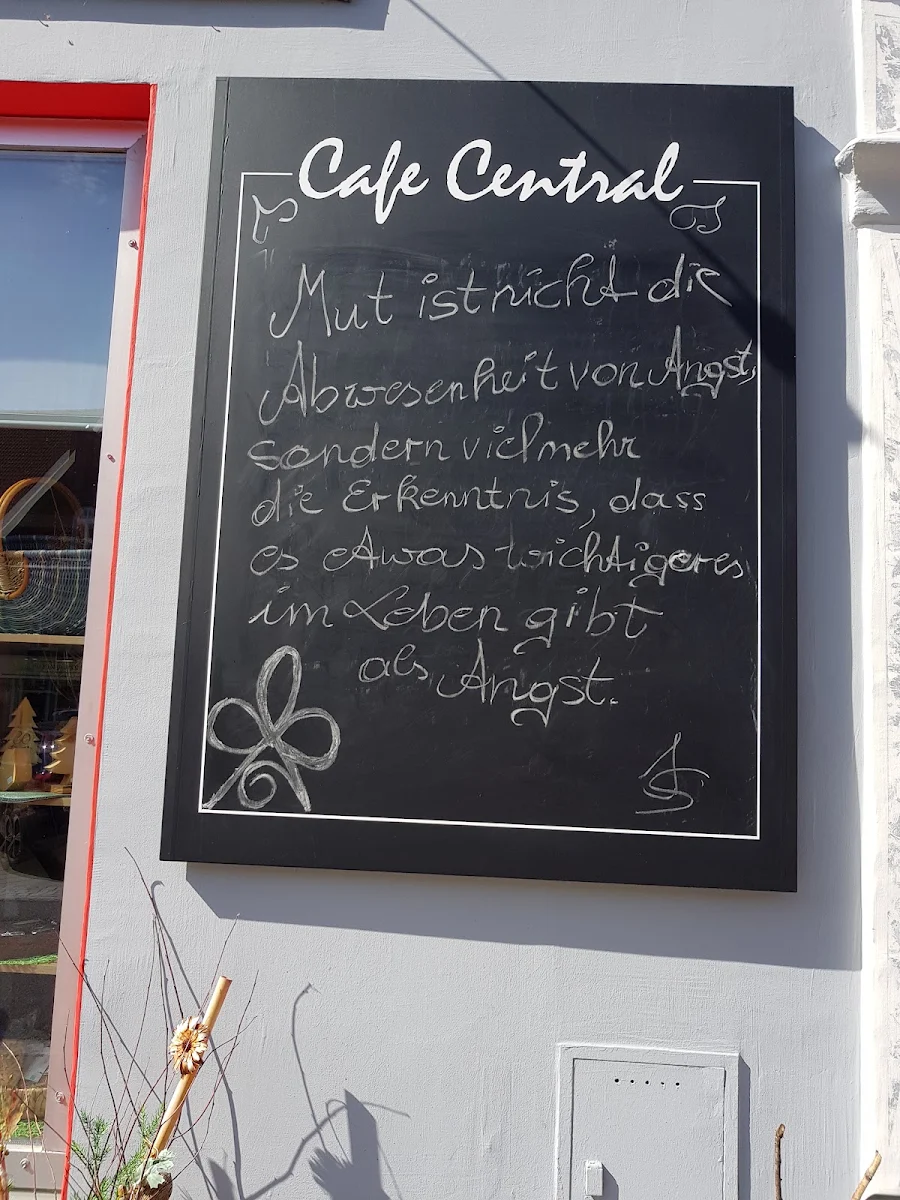 Cafe Central
Mut ist nicht die
Abwesenheit von Angst,
sondern vielmehr
die Erkenntnis, dass
es etwas wichtigeres
im Leben gibt
als Angst.